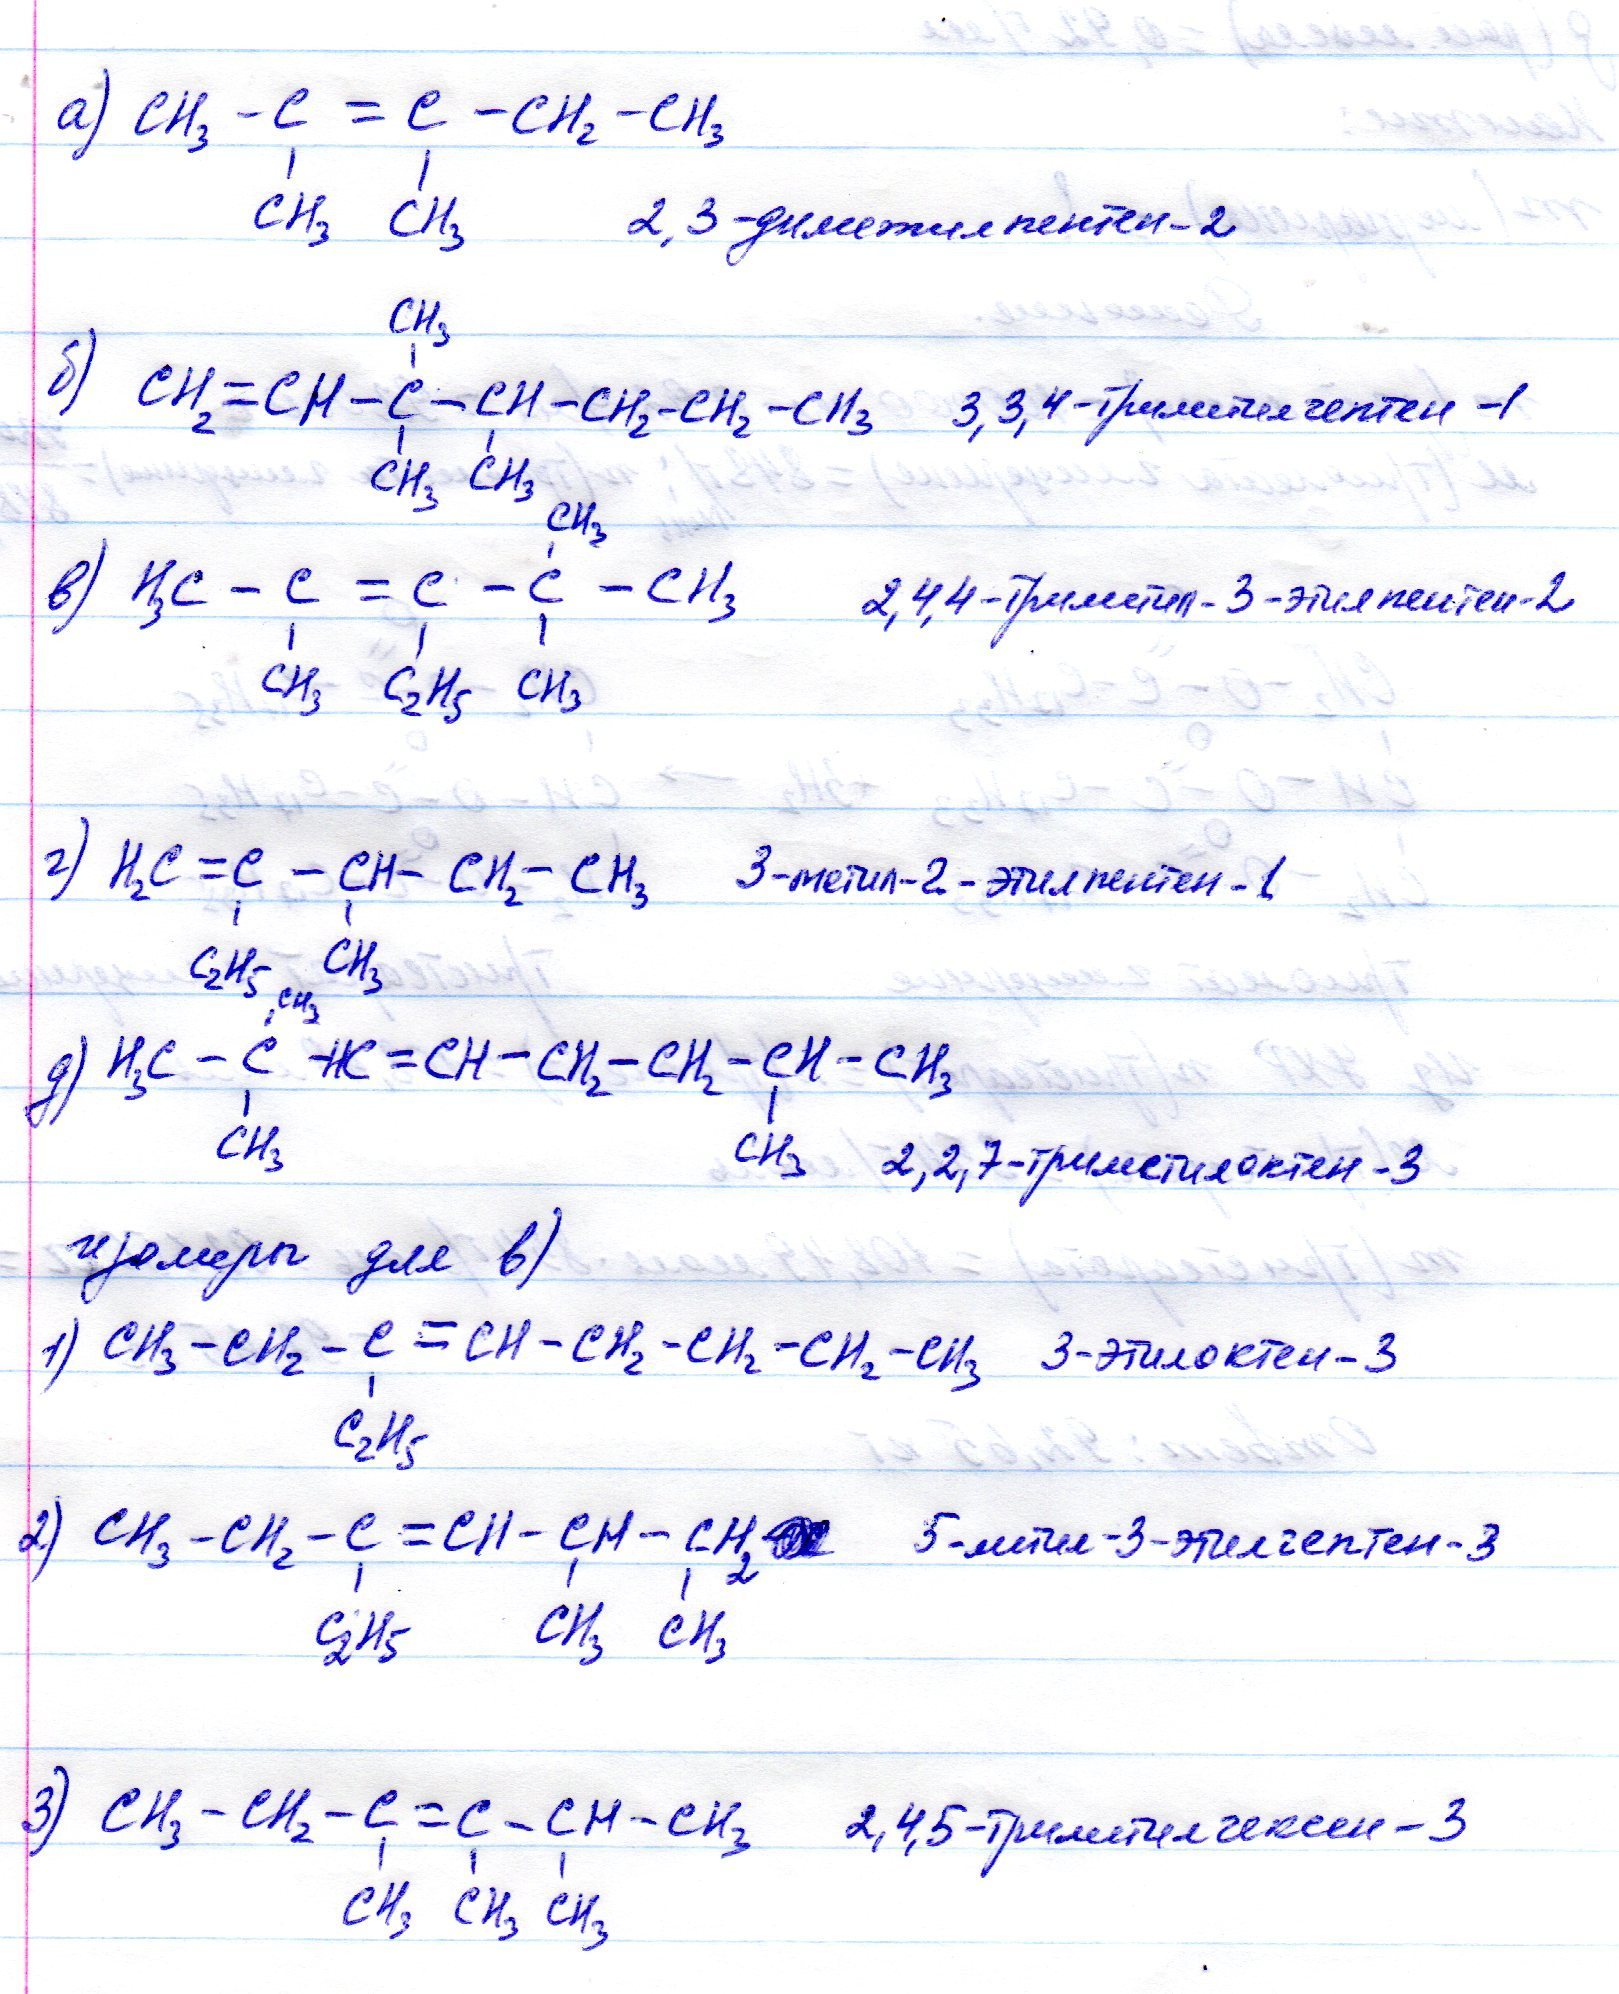 а) CH₃ - C = C - CH₂ - CH₃
CH₃ CH₃ 2,3-диметилпентен-2
CH₃
б) CH₂=CH - C - CH - CH₂ - CH₂ - CH₃ 3,3,4-триметилгептен-1
CH₃ CH₃
CH₃
в) H₃C - C = C - C - CH₃ 2,4,4-триметил-3-этилпентен-2
CH₃ C₂H₅ CH₃
г) H₂C = C - CH - CH₂ - CH₃ 3-метил-2-этилпентен-1
C₂H₅ CH₃
CH₃
д) H₃C - C - HC = CH - CH₂ - CH₂ - CH - CH₃
CH₃ CH₃ 2,2,7-триметилоктен-3
изомеры для в)
1) CH₃ - CH₂ - C = CH - CH₂ - CH₂ - CH₂ - CH₃ 3-этилоктен-3
C₂H₅
2) CH₃ - CH₂ - C = CH - CH - CH₂ 5-метил-3-этилгептен-3
C₂H₅ CH₃ CH₃
3) CH₃ - CH₂ - C = C - CH - CH₃ 2,4,5-триметилгексен-3
CH₃ CH₃ CH₃